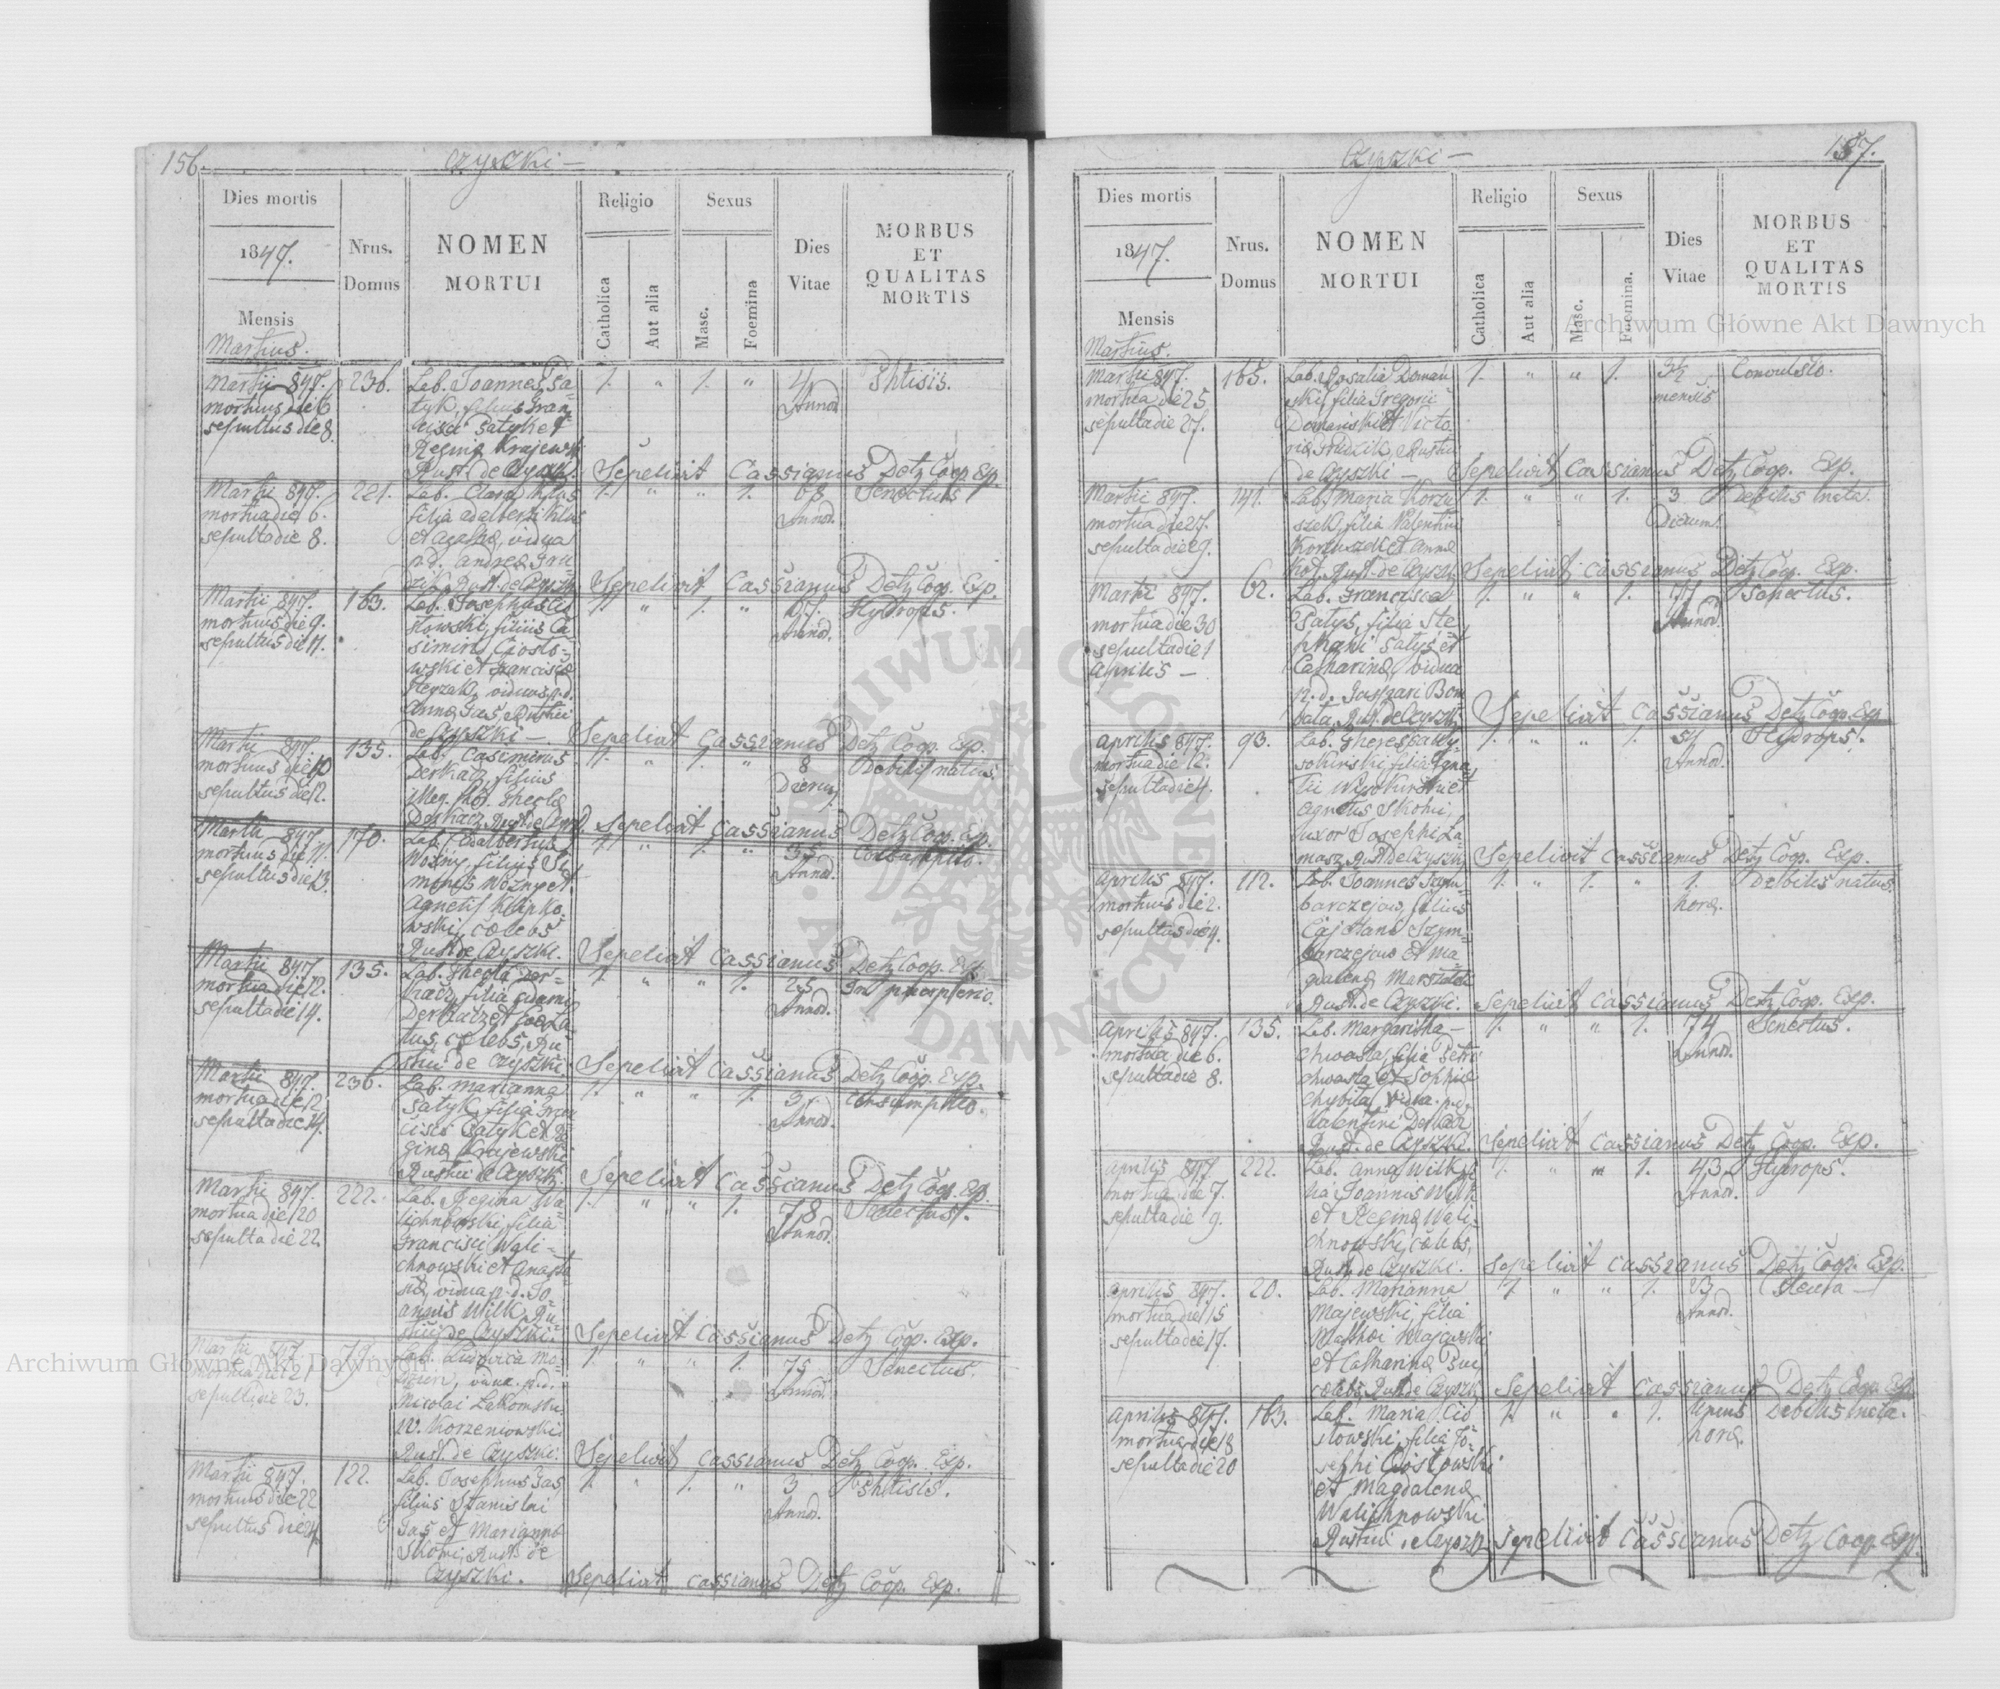 156.
Czyszki —
Dies mortis
1847.
Mensis
Martius.
Nrus.
Domus
NOMEN
MORTUI
Religio
Catholica
Aut alia
Sexus
Masc.
Foemina
Dies
Vitae
MORBUS
ET
QUALITAS
MORTIS
Martii 847. 236. Lab. Joannes Sa= 1. " 1. " 4 Phtisis.
mortuus die 6 tyk, filius Fran= Annor.
sepultus die 8. cisci Satyk et
Regina Krajewski
Rust. de Czyszki. Sepelivit Cassianus Detz Coop. Exp.
Martii 847. 221. Lab. Clara Klus 1. " " 1. 68 Senectus.
mortua die 6. filia Adalberti Klus Annor.
sepulta die 8. et Agatha, vidua
p.d. Andrea
Rust. de Czyszki Sepelivit Cassianus Detz Coop. Exp.
Martii 847. 163. Lab. Josephus Cio 1. " 1. " Hydrops.
mortuus die 9. stowski, filius Ca= Annor.
sepultus die 11. simiri Ciosto=
wski et Francisca
viduus p.d.
Anna Gas, Rustici
de Czyszki — Sepelivit Cassianus Detz Coop. Exp.
Martii 847. 135. Lab. Casimirus 1. " 1. " 8 Debilis natus.
mortuus die 10 Derkacz, filius Dierum
sepultus die 12. illeg. thori Thecla
Derkacz, Rust. de Czysz. Sepelivit Cassianus Detz Coop. Exp.
Martii 847. 170. Lab. Adalbertus 1. " 1. " 35
mortuus die 11. Wozny, filius Si= Annor.
sepultus die 13. monis Wozny et
Agnetis Klipko=
wski, cœlebs
Rust. de Czyszki. Sepelivit Cassianus Detz Coop. Exp.
Martii 847. 135. Lab. Thecla Der= 1. " " 1. 25 In puerperio.
mortua die 12. kacz, filia Annor.
sepulta die 14. Derkacz et
cœlebs, Ru=
stici de Czyszki. Sepelivit Cassianus Detz Coop. Exp.
Martii 847. 236. Lab. Marianna 1. " " 1. 3. Consumptio.
mortua die 12. Satyk, filia Fran= Annor.
sepulta die 14. cisci Satyk et Re=
gina Krajewski
Rustici de Czyszki. Sepelivit Cassianus Detz Coop. Exp.
Martii 847. 222. Lab. Regina Wa= 1. " " 1. 78 Senectus.
mortua die 20 lichnowski, filia Annor.
sepulta die 22 Francisci Wali=
chnowski et Anasta
siæ, vidua p.d. Jo=
annis Wilk, Ru=
stici de Czyszki. Sepelivit Cassianus Detz Coop. Exp.
Martii 847. 79. Lab. Ludovica 1. " " 1. 75 Senectus.
mortua die 21 vidua p.d. Annor.
sepulta die 23. Nicolai
Korzeniowski
Rust. de Czyszki. Sepelivit Cassianus Detz Coop. Exp.
Martii 847. 122. Lab. Josephus Gas 1. " 1. " 3 Phtisis.
mortuus die 22 filius Stanislai Annor.
sepultus die 24. Gas et Marianna
Skomi, Rust. de
Czyszki. Sepelivit Cassianus Detz Coop. Exp.
157.
Czyszki —
Dies mortis
1847.
Mensis
Martius.
Nrus.
Domus
NOMEN
MORTUI
Religio
Catholica
Aut alia
Sexus
Masc.
Foemina.
Dies
Vitae
MORBUS
ET
QUALITAS
MORTIS
Martii 847. 165. Lab. Rosalia Doman 1. " " 1. 3½ Convulsio.
mortua die 25 ski, filia Gregorii mensis
sepulta die 27. Domanski et Victo
ria Rustici
de Czyszki — Sepelivit Cassianus Detz Coop. Exp.
Martii 847. 191. Lab. Maria Korzu 1. " " 1. 3 Debilis nata.
mortua die 27. szek, filia Valentini Dierum
sepulta die 29. Korzuszek et Anna
Rust. de Czyszki Sepelivit Cassianus Detz Coop. Exp.
Martii 847. 62. Lab. Francisca 1. " " 1. Senectus.
mortua die 30 Satys, filia Ste= Annor.
sepulta die 1 phani Satys et
Aprilis — Catharina, vidua
p.d. Gaspari Bom
bala, Rust. de Czyszki Sepelivit Cassianus Detz Coop. Exp.
Aprilis 847. 93. Lab. Theressa Wy= 1. " " 1. 54 Hydrops.
mortua die 2. sokinski, filia Igna Annor.
sepulta die 4. tii Wysokinski et
Agnetis Skomi,
uxor Josephi La=
masz, Rust. de Czyszki Sepelivit Cassianus Detz Coop. Exp.
Aprilis 847. 112. Lab. Joannes Szym= 1. " 1. " 1. Debilis natus.
mortuus die 2. barczejow, filius hora.
sepultus die 4. Cajetani Szym=
barczejow et Ma=
gdalena Marszalek
Rust. de Czyszki. Sepelivit Cassianus Detz Coop. Exp.
Aprilis 847. 135. Lab. Margaritha — 1. " " 1. 74 Senectus.
mortua die 6. Chwasta, filia Petri Annor.
sepulta die 8. Chwasta et Sophia
Chybita, vidua p.d.
Valentini Derkacz
Rust. de Czyszki. Sepelivit Cassianus Detz Coop. Exp.
Aprilis 847. 222. Lab. Anna Wilk, fi 1. " " 1. 43 Hydrops.
mortua die 7. lia Joannis Wilk Annor.
sepulta die 9. et Regina Wali=
chnowski, cœlebs,
Rust. de Czyszki. Sepelivit Cassianus Detz Coop. Exp.
Aprilis 847. 20. Lab. Marianna 1. " " 1. 23
mortua die 15 Majewski, filia Annor.
sepulta die 17. Mathei Majewski
et Catharina
cœlebs, Rust. de Czyszki Sepelivit Cassianus Detz Coop. Exp.
Aprilis 847. 163. Lab. Maria Cio 1. " " 1. Unius Debilis nata.
mortua die 18 stowski, filia Jo= hora.
sepulta die 20 sephi Ciostowski
et Magdalena
Walichnowski
Rustici, Czyszki Sepelivit Cassianus Detz Coop. Exp.
Archiwum Główne Akt Dawnych
Archiwum Główne Akt Dawnych
ARCHIWUM GŁÓWNE
AKT DAWNYCH